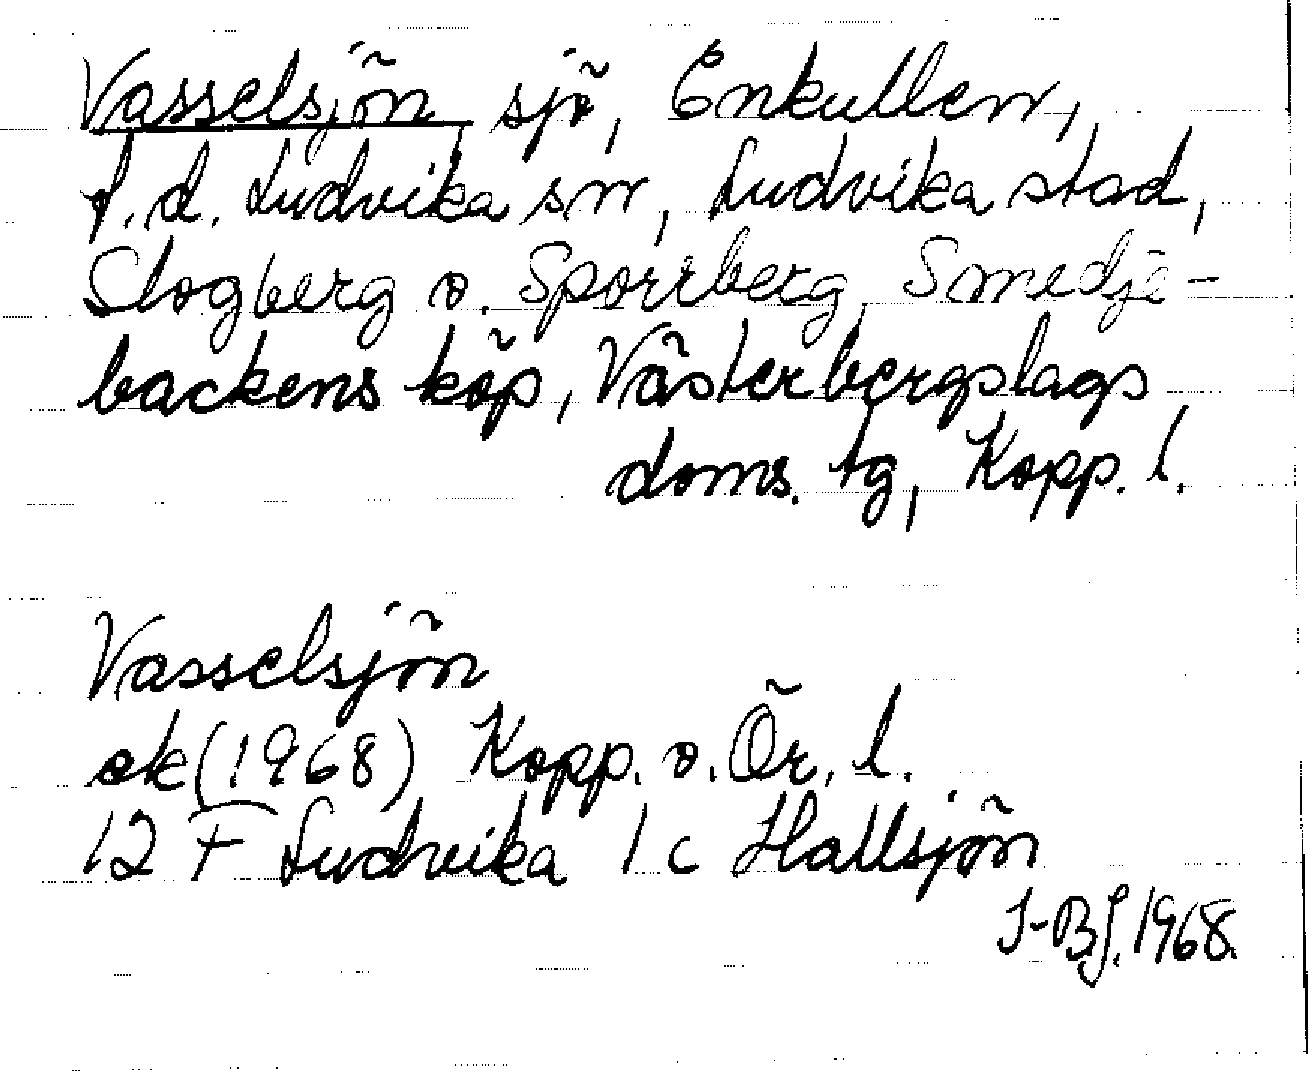 Vasselsjön, sjö, Enkullen,
f.d. Ludvika sn, Ludvika stad,
Slogberg o. Sporrberg, Smedje-
backens köp, Västerbergslags
doms. tg, Kopp. l.
Vasselsjön
ek (1968) Kopp. o. Ör. l.
12 F Ludvika 1 c Hallsjön
I-BJ. 1968.